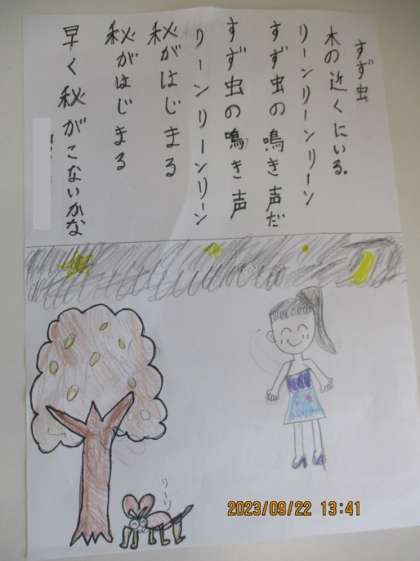 すず虫
木の近くにいる。
リーンリーンリーン
すず虫の鳴き声だ
すず虫の鳴き声
リーンリーンリーン
秋がはじまる
秋がはじまる
早く秋がこないかな
2023/09/22 13:41